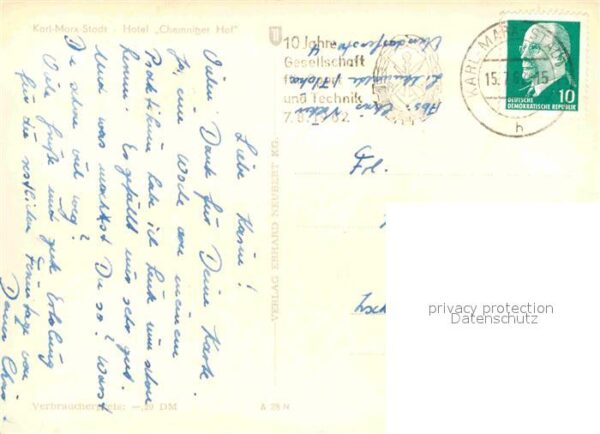 Karl-Marx-Stadt · Hotel „Chemnitzer Hof"
Liebe Karin!
Vielen Dank für Deine Karte.
Ja, eine Woche von meinem
Praktikum habe ich heute nun schon
herum. Es gefällt mir sehr gut.
Und was machst Du so? Warst
Du schon viel weg?
Viele Grüße und gute Erholung
für die restlichen Ferientage von
Deiner
Verbraucherpreis: —,20 DM
A 28 N
VERLAG ERHARD NEUBERT KG.
10 Jahre
Gesellschaft
für Sport
und Technik
7.8.1962
KARL-MARX-STADT
15.7.6
15
h
DEUTSCHE
DEMOKRATISCHE REPUBLIK
10
Abs.
Frl.
privacy protection
Datenschutz